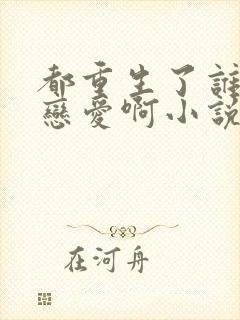 都重生了誰
戀愛啊小說
在河舟